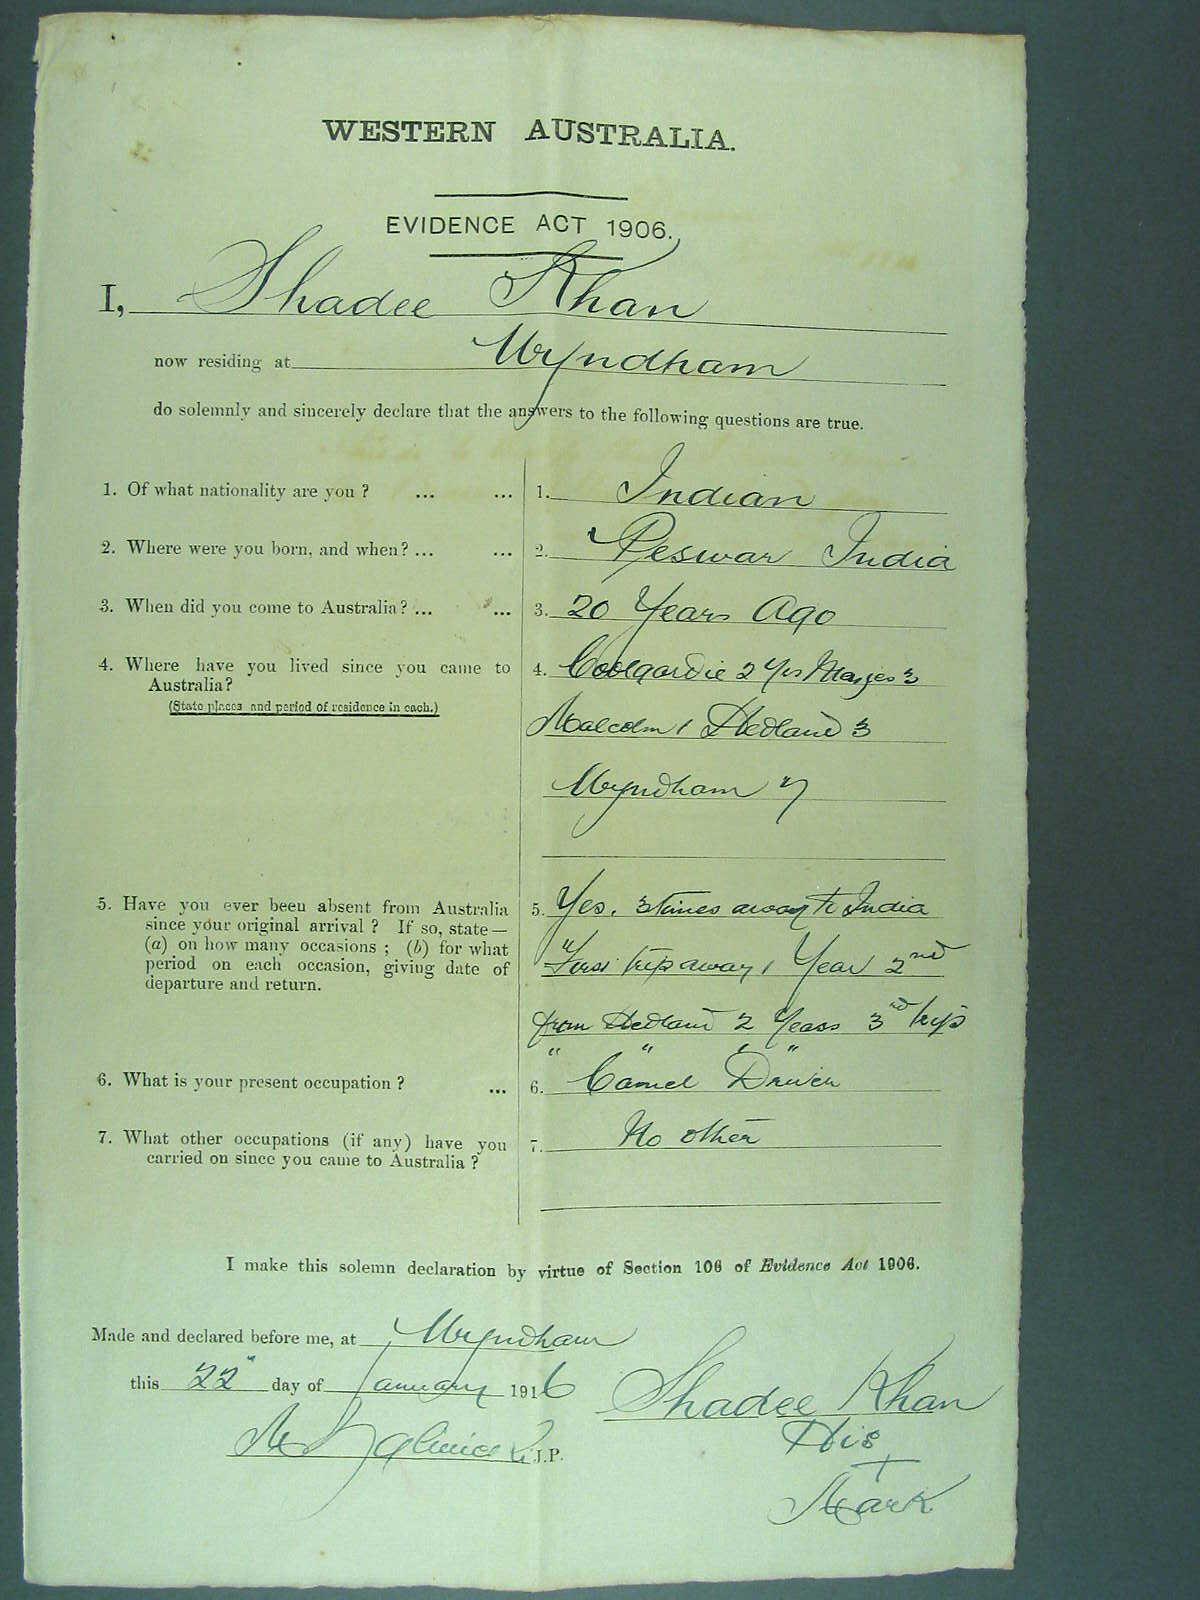 WESTERN AUSTRALIA.
EVIDENCE ACT 1906.
I, Shadee Khan
now residing at Wyndham
do solemnly and sincerely declare that the answers to the following questions are true.
1. Of what nationality are you ? ... ... 1. Indian
2. Where were you born, and when? ... ... 2. Peswar India
3. When did you come to Australia? ... ... 3. 20 Years Ago
4. Where have you lived since you came to 4. Coolgardie 2 Yrs 3
Australia?
(State places and period of residence in each.)
Malcolm 1 Hedland 3
Wyndham 7
5. Have you ever been absent from Australia 5. Yes. 3 times away to India
since your original arrival ? If so, state—
(a) on how many occasions ; (b) for what
period on each occasion, giving date of
departure and return.
First trip away 1 Year 2nd
from Hedland 2 Years 3rd trip
" " " "
6. What is your present occupation ? ... 6. Camel Driver
7. What other occupations (if any) have you 7. No other
carried on since you came to Australia ?
I make this solemn declaration by virtue of Section 106 of Evidence Act 1906.
Made and declared before me, at Wyndham
this 22" day of January 1916
J.P.
Shadee Khan
His
X
Mark